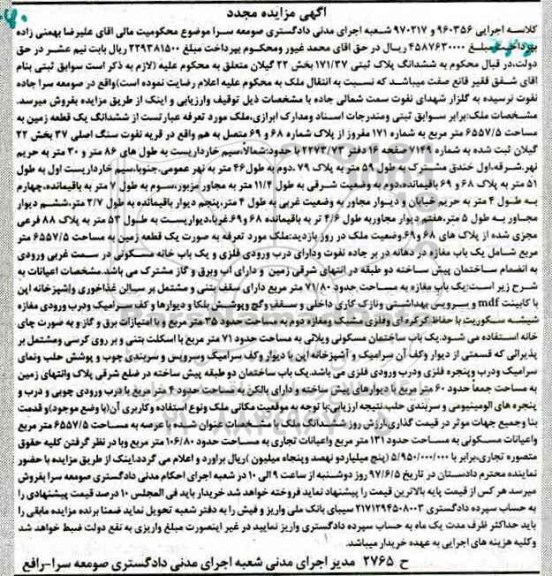 آگهی مزایده مجدد
کلاسه اجرایی ۹۶۰۳۵۶ و ۹۷۰۲۱۷ شعبه اجرای مدنی دادگستری صومعه سرا موضوع محکومیت مالی آقای علیرضا بهمنی زاده
مبلغ ۴۵۸۷۶۳۰۰۰۰ ریال در حق آقای محمد غیور ومحکوم بپرداخت مبلغ ۲۲۹۳۸۱۵۰۰ ریال بابت نیم عشر در حق
دولت،در قبال محکوم به ششدانگ پلاک ثبتی ۱۷۱/۳۷ بخش ۲۲ گیلان متعلق به محکوم علیه (لازم به ذکر است سوابق ثبتی بنام
آقای شفق فقیر قانع صفت میباشد که نسبت به انتقال ملک به محکوم علیه اعلام رضایت نموده است)واقع در صومعه سرا جاده
نفوت نرسیده به گلزار شهدای نفوت سمت شمالی جاده با مشخصات ذیل توقیف وارزیابی و اینک از طریق مزایده بفروش میرسد.
مشخصات ملک:برابر سوابق ثبتی ومندرجات اسناد ومدارک ابرازی،ملک مورد تعرفه عبارتست از ششدانگ یک قطعه زمین به
مساحت ۶۵۵۷/۵ متر مربع به شماره ۱۷۱ مفروز از پلاک شماره ۶۸ و ۶۹ متصل به هم واقع در قریه نفوت سنگ اصلی ۳۷ بخش ۲۲
گیلان ثبت شده به شماره ۷۱۴۹ صفحه ۱۶ دفتر ۲۲۷۳/۷۳ با حدود:شمالا،سیم خارداریست به طول های ۸۶ متر و ۳۰ متر به حریم
نهر.شرقا،اول خندق مشترک به طول ۵۹ متر به پلاک ۷۹ ،دوم به طول۴۶ متر به نهر عمومی.جنوبا،سیم خارداریست اول به طول
۵۱ متر به پلاک ۶۸ و ۶۹ باقیمانده،دوم به وضعیت شرقی به طول ۱۱/۴ متر به مجاور مزبور،سوم به طول ۷ متر به باقیمانده،چهارم
به طول ۴ متر به حریم خیابان و دیوار مجاور به وضعیت غربی به طول ۴ متر،پنجم دیوار باقیمانده به طول ۲/۷ متر،ششم دیوار
مجاور به طول ۵ متر،هفتم دیوار مجاوربه طول ۴/۶ تر به باقیمانده ۶۸ و۶۹.غربا،دیواریست به طول ۵۳ متر به پلاک ۸۸ فرعی
مجزی شده از پلاک های ۶۸ و۶۹.وضعیت ملک در روز بازدید:ملک مورد تعرفه به صورت یک قطعه زمین به مساحت ۶۵۵۷/۵ متر
مربع شامل یک باب مغازه در دهانه در بر جاده نفوت ودارای درب ورودی فلزی و یک باب خانه مسکونی در سمت غربی ورودی
به انضمام ساختمان پیش ساخته دو طبقه در انتهای شرقی زمین و دارای آب وبرق و گاز مشترک می باشد.مشخصات اعیانات به
شرح زیر است:یک باب مغازه به مساحت حدود ۷۱/۸۰ متر مربع دارای سقف بتنی و مشتمل بر سالن غذاخوری واشپزخانه اپن
با کابینت mdf و سرویس بهداشتی ونازک کاری داخلی و سقف وگچ وپوشش بلکا و دیوارها و کف سرامیک ودرب ورودی مغازه
شیشه سکوریت با حفاظ کرکره ای وفلزی مشبک ومغازه دوم به مساحت حدود ۳۵ متر مربع و با امتیازات برق و گاز و به صورت چای
خانه استفاده می شود.یک باب ساختمان مسکونی ویلایی به مساحت حدود ۷۱ متر مربع با اسکلت بتنی و بر روی کرسی ومشتمل بر
پذیرائی که قسمتی از دیوار وکف آن سرامیک و آشپزخانه اپن با دیوار وکف سرامیک وسرویس و سربندی چوب و پوشش حلب ونمای
سرامیک ودرب وپنجره فلزی ودرب ورودی فلزی می باشد.یک باب ساختمان دو طبقه پیش ساخته در ضلع شرقی پلاک وانتهای زمین
به مساحت جمعا حدود ۶۰ متر مربع با دیوارهای پیش ساخته و دارای بالکن به مساحت حدود ۴ متر مربع با درب ورودی چوبی و درب و
پنجره های الومینیومی و سربندی حلب.نتیجه ارزیابی:با توجه به موقعیت مکانی ملک ونوع استفاده وکاربری آن(با وضع موجود)و قدمت
بنا وجمیع جهات موثر در قیمت گذاری،ارزش روز ششدانگ ملک با مشخصات عنوان شده با عرصه به مساحت ۶۵۵۷/۵ متر مربع
واعیانات مسکونی به مساحت حدود ۱۳۱ متر مربع واعیانات تجاری به مساحت حدود ۱۰۶/۸۰ متر مربع وبا در نظر گرفتن کلیه حقوق
متصوره تجاری،برابر با ۵/۹۵۰/۰۰۰/۰۰۰ (پنج میلیاردو نهصد وپنجاه میلیون )ریال براورد و اعلام می گردد.اینک از طریق مزایده با حضور
نماینده محترم دادستان در تاریخ ۹۷/۶/۵ روز دوشنبه از ساعت ۹ الی ۱۰ در شعبه اجرای احکام مدنی دادگستری صومعه سرا بفروش
میرسد هر کس از قیمت پایه بالاترین قیمت را پیشنهاد نماید فروخته خواهد شد خریدار باید فی المجلس ۱۰ درصد قیمت پیشنهادی را
به حساب سپرده دادگستری ۲۱۷۱۲۹۴۵۰۸۰۰۳ سیبای بانک ملی واریز و فیش را به دفتر شعبه تحویل نماید ضمنا برنده مزایده مابقی را
باید حداکثر ظرف مدت یک ماه به حساب سپرده دادگستری واریز نمایید در غیر اینصورت مبلغ واریزی به نفع دولت ضبط خواهد شد
وکلیه هزینه های اجرایی به عهده خریدار میباشد.
ح ۲۷۶۵ مدیر اجرای مدنی شعبه اجرای مدنی دادگستری صومعه سرا-رافع